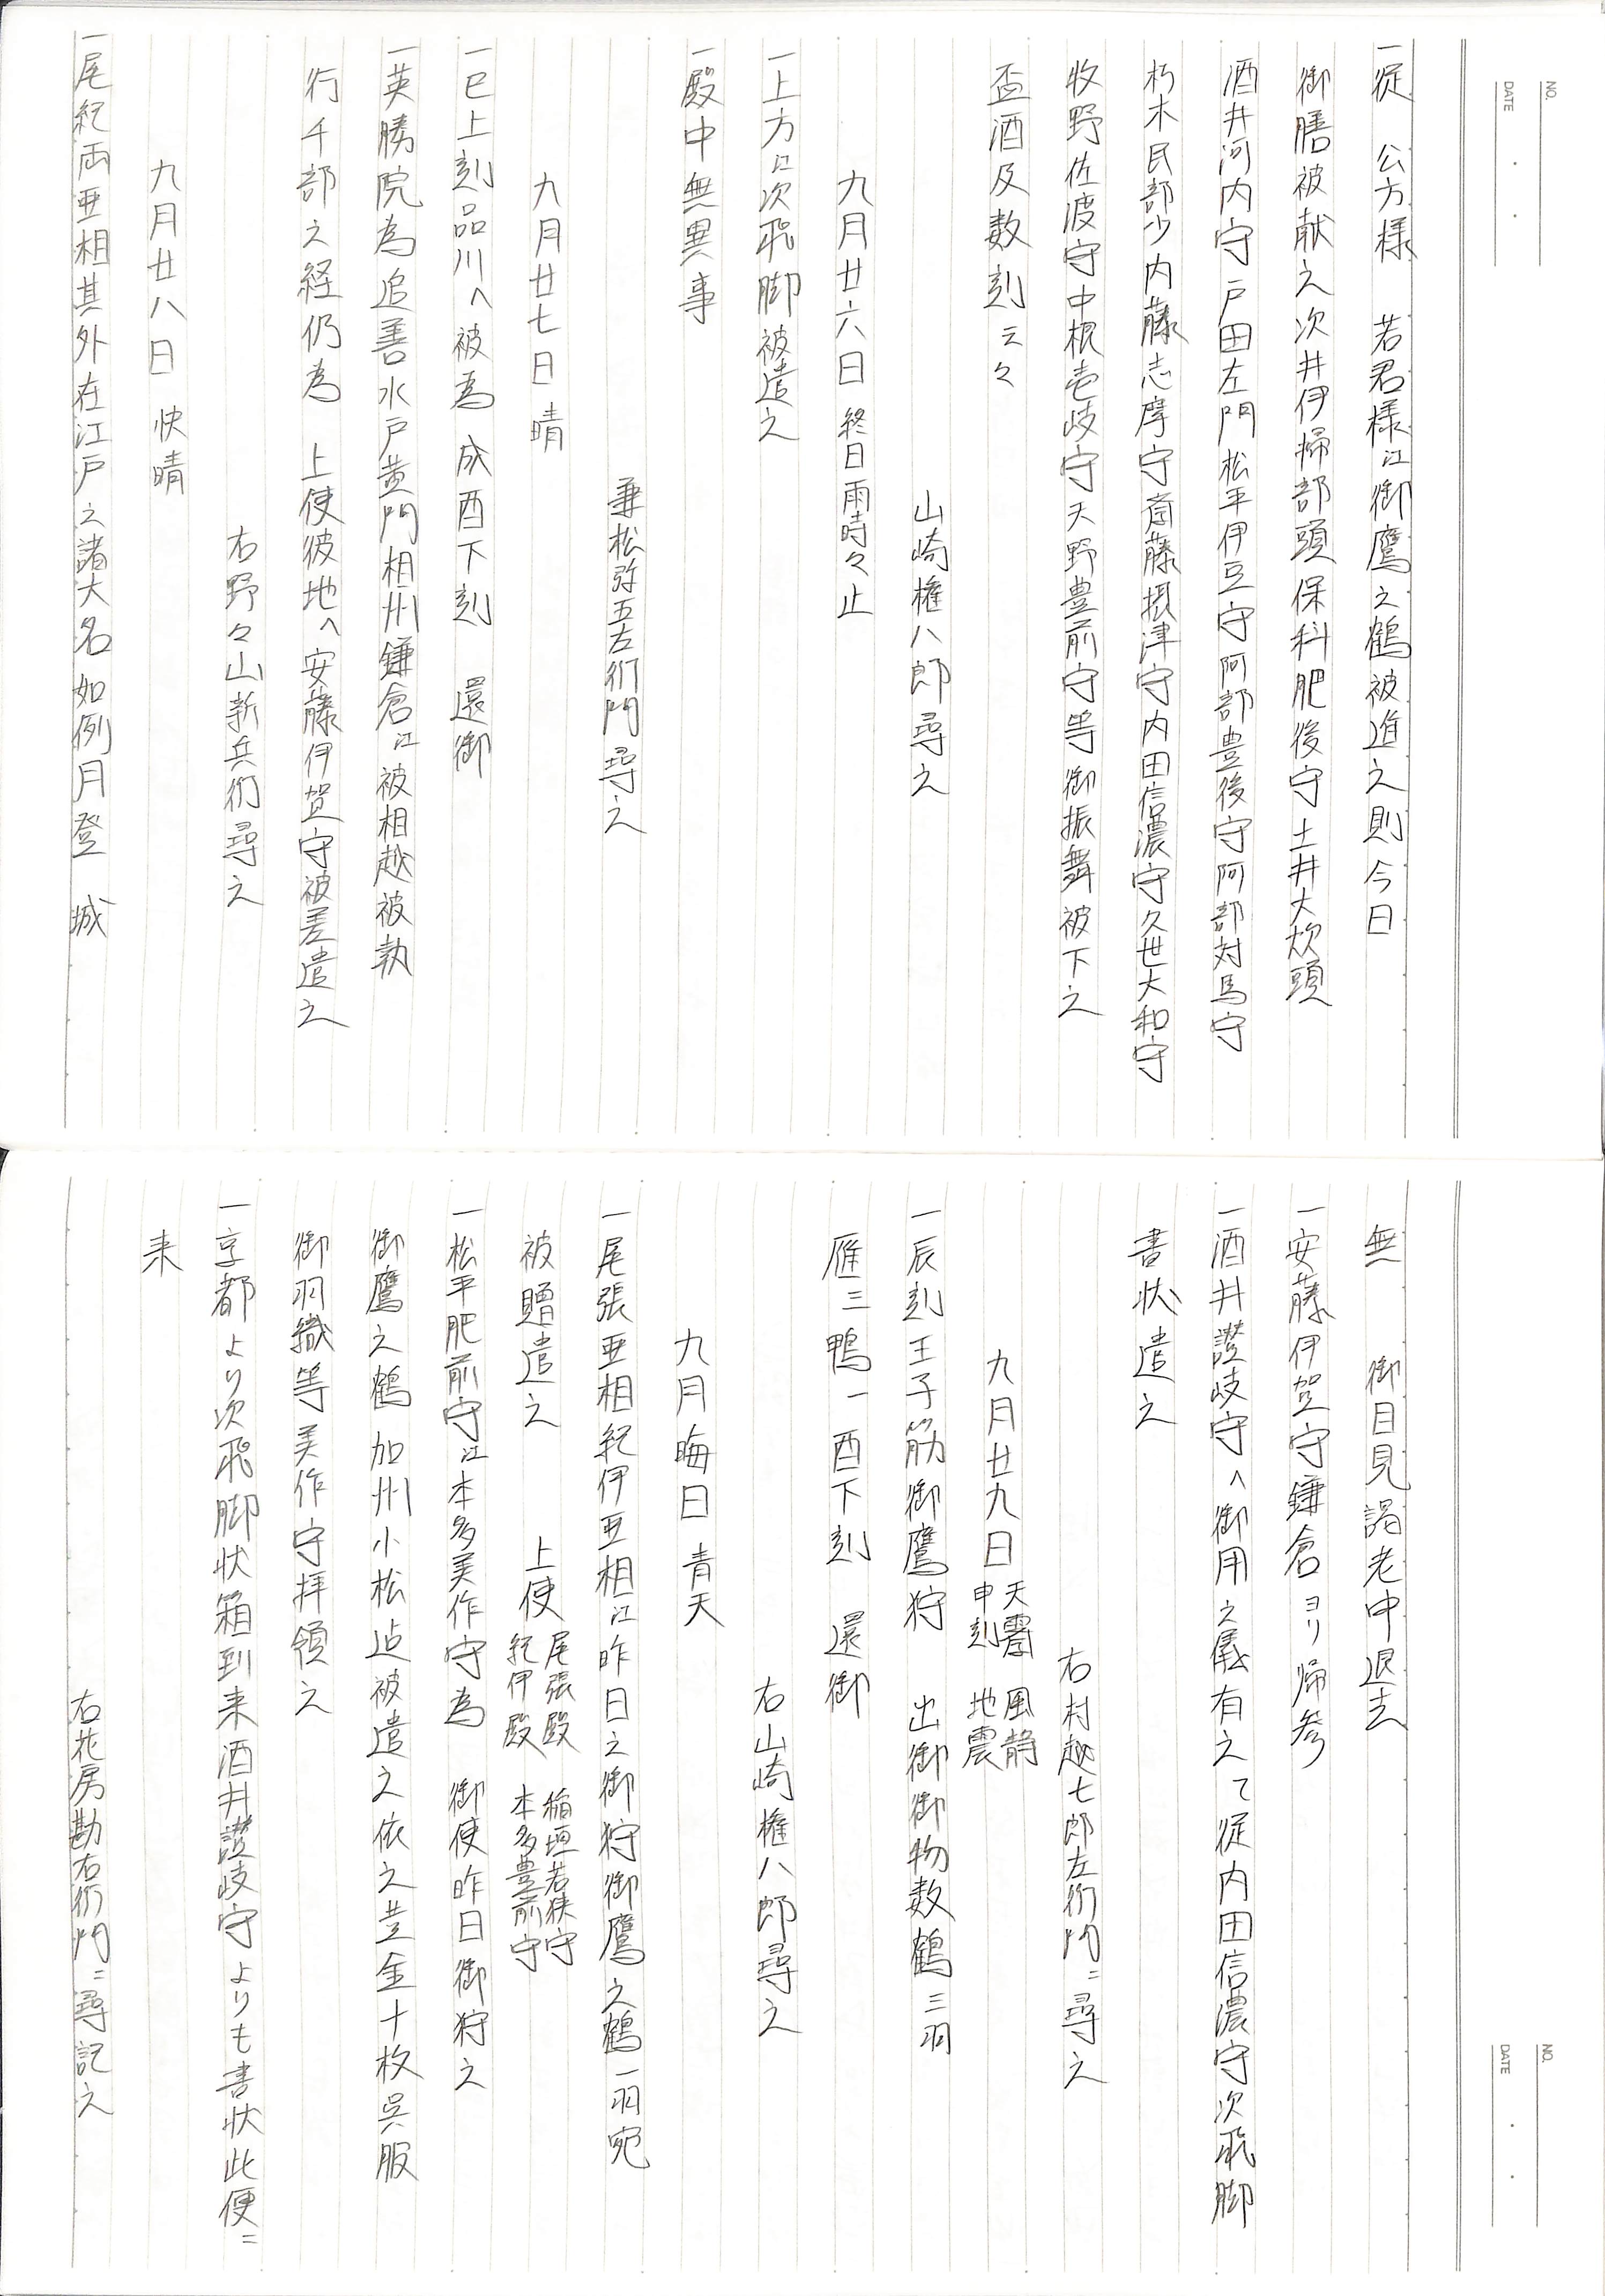 NO.
DATE
一従　公方様　若君様江御鷹之鶴被進之則今日
御膳被献之次井伊掃部頭保科肥後守土井大炊頭
酒井河内守戸田左門松平伊豆守阿部豊後守阿部対馬守
朽木民部少内藤志摩守斎藤摂津守内田信濃守久世大和守
牧野佐渡守中根壱岐守天野豊前守等御振舞被下之
盃酒及数刻云々
山崎権八郎尋之
九月廿六日　終日雨時々止
一上方江次飛脚被遣之
一殿中無異事
兼松弥五左衛門尋之
九月廿七日　晴
一巳上刻品川へ被為　成酉下刻　還御
一英勝院為追善水戸黄門相州鎌倉江被相越被執
行千部之経仍為　上使彼地へ安藤伊賀守被差遣之
右野々山新兵衛尋之
九月廿八日　快晴
一尾紀両亜相其外在江戸之諸大名如例月登　城
NO.
DATE
無　御目見謁老中退去
一安藤伊賀守鎌倉ヨリ帰参
一酒井讃岐守へ御用之儀有之て従内田信濃守次飛脚
書状遣之
右村越七郎左衛門ニ尋之
九月廿九日　天曇　風静
申刻　地震
一辰刻王子筋御鷹狩　出御御物数鶴三羽
雁三鴨一酉下刻　還御
右山崎権八郎尋之
九月晦日　青天
一尾張亜相紀伊亜相江昨日之御狩御鷹之鶴一羽宛
被贈遣之　上使　尾張殿　稲垣若狭守
紀伊殿　本多豊前守
一松平肥前守江本多美作守為　御使昨日御狩之
御鷹之鶴加州小松迠被遣之依之黄金十枚呉服
御羽織等美作守拝領之
一京都より次飛脚状箱到来酒井讃岐守よりも書状此便ニ
来
右花房勘右衛門ニ尋記之